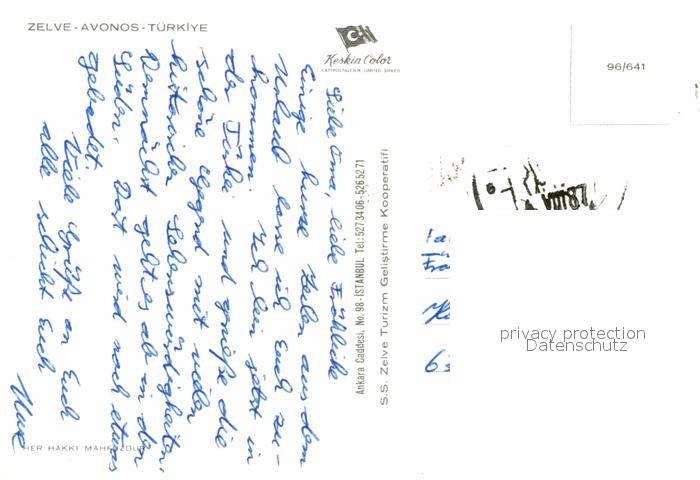 ZELVE - AVONOS - TÜRKİYE
Keskin Color
KARTPOSTALCILIK LIMITED ŞİRKETİ
96/641
VIII 87
Liebe Oma, liebe Fröhliche
Einige kurze Zeilen aus dem
Urlaub lasse ich Euch zu-
kommen. Ich bin jetzt in
der Türkei und genieße die
schöne Gegend mit vielen
historischen Sehenswürdigkeiten.
Demnächst geht es ab in den
Süden. Dort wird noch etwas
gebadet.
Viele Grüße an Euch
alle schickt Euch
Uwe
Ankara Caddesi, No. 98 - İSTANBUL Tel: 527 34 06 - 526 52 71
S.S. Zelve Turizm Geliştirme Kooperatifi
HER HAKKI MAHFUZDUR
Fa
Frö
63
privacy protection
Datenschutz